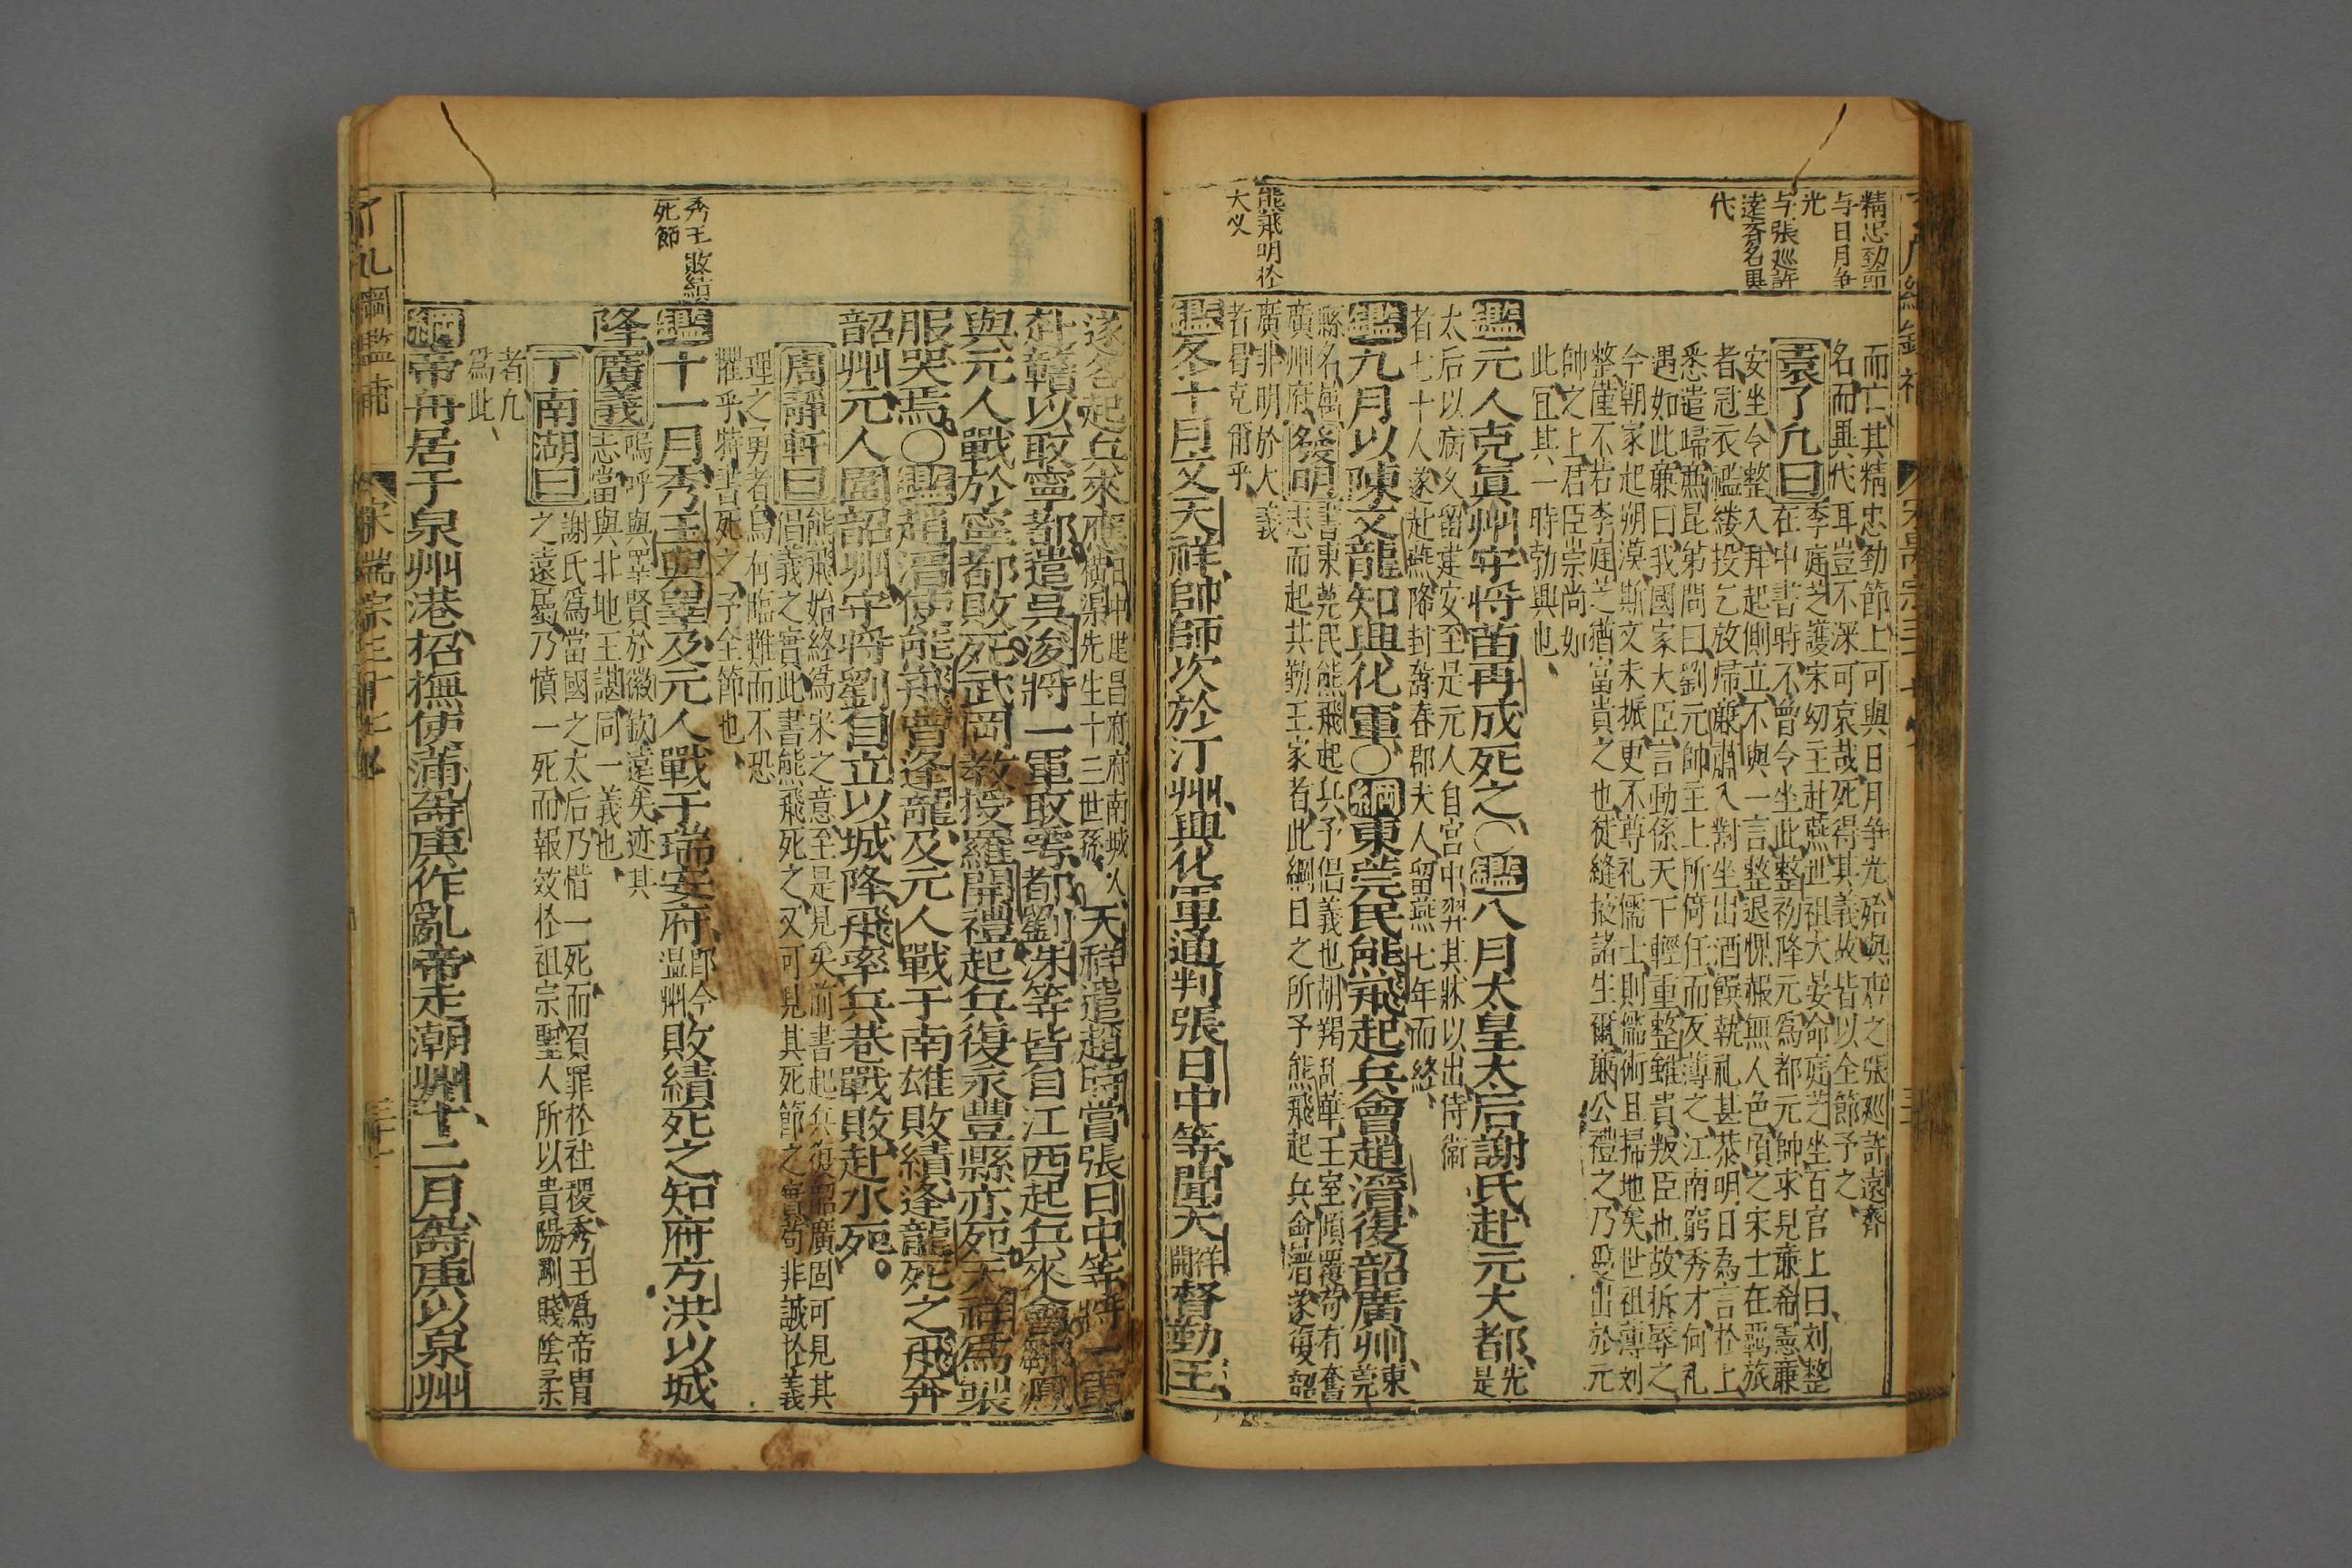 精忠勁節
与日月争
光
与張廵許
遠斉名異
代
而亡其精忠勁節上可與日月争光殆與唐之張廵許遠齊
名而異代耳豈不深可哀哉死得其義故皆以全節予之
袁了凡曰李庭芝護宋幼主赴燕世祖大宴命庭芝坐百官上曰刘整
在中書時不曾令坐此整初降元為都元帥求見亷希憲亷
安坐令整入拜起側立不與一言整退慙赧無人色頃之宋士在羈旅
者冠衣襤褸投乞放歸亷肅入對坐出酒饌執礼甚恭明日為言於上
悉遣歸亷昆第問曰劉元帥王上所倚任而反薄之江南窮秀才何礼
遇如此亷曰我國家大臣言動係天下輕重整雖貴叛臣也故折辱之
今朝家起朔漠斯文未振更不尊礼儒士則儒術且掃地矣世祖薄刘
整僅不若李庭芝猶富貴之也徒縫掖諸生爾亷公禮之乃爰出於元
帥之上君臣崇尚如
此宜其一時勃興也
鑑元人克眞州守將苗再成死之〇鑑八月太皇太后謝氏赴元大都先是
太后以病久留建安至是元人自宮中舁其牀以出侍衞
者七十人遂赴燕降封壽春郡夫人留燕七年而終
鑑九月以陳文龍知興化軍〇綱東莞民熊飛起兵會趙溍復韶廣州東莞
縣名属
廣州府發明書東莞民熊飛起兵予倡義也胡羯乱華王室傾覆苟有奮
志而起其勤王家者此綱目之所予熊飛起兵會溍遂復韶
廣非明於大義
者曷克爾乎
熊飛明於
大义
鑑冬十月文天祥帥師次於汀州興化軍通判張日中等聞天祥開督勤王
遂各起兵來應日中建昌府府南城人橫渠先生十三世孫天祥遣趙時賞張日中等將一軍
赴贛以取寧都遣吳浚將一軍取雩都劉洙等皆自江西起兵來會鄒㵯
與元人戰於寧都敗死武岡教授羅開禮起兵復永豐縣亦死天祥爲製
服哭焉〇鑑趙溍使熊飛曾逢龍及元人戰于南雄敗績逢龍死之飛奔
韶州元人圍韶州守將劉自立以城降飛率兵巷戰敗赴水死
周靜軒曰熊飛始終爲宋之意至是見矣前書起兵復韶廣固可見其
倡義之實此書熊飛死之又可見其死節之實苟非誠於義
理之勇者烏有臨難而不恐
懼乎特書死之予全節也
秀王敗績
死節
鑑十一月秀王與睪及元人戰于瑞安府即今温州敗績死之知府方洪以城
隆廣義嗚呼與睪賢於徽欽遠矣迹其
志當與北地王諶同一義也
丁南湖曰謝氏爲當國之太后乃惜一死而負罪於社稷秀王爲帝冑
之遠屬乃憤一死而報效於祖宗聖人所以貴陽剛賤陰柔
者凢
爲此
綱帝舟居于泉州港招撫使蒲壽庚作亂帝走潮州十二月壽庚以泉州
宋端宗